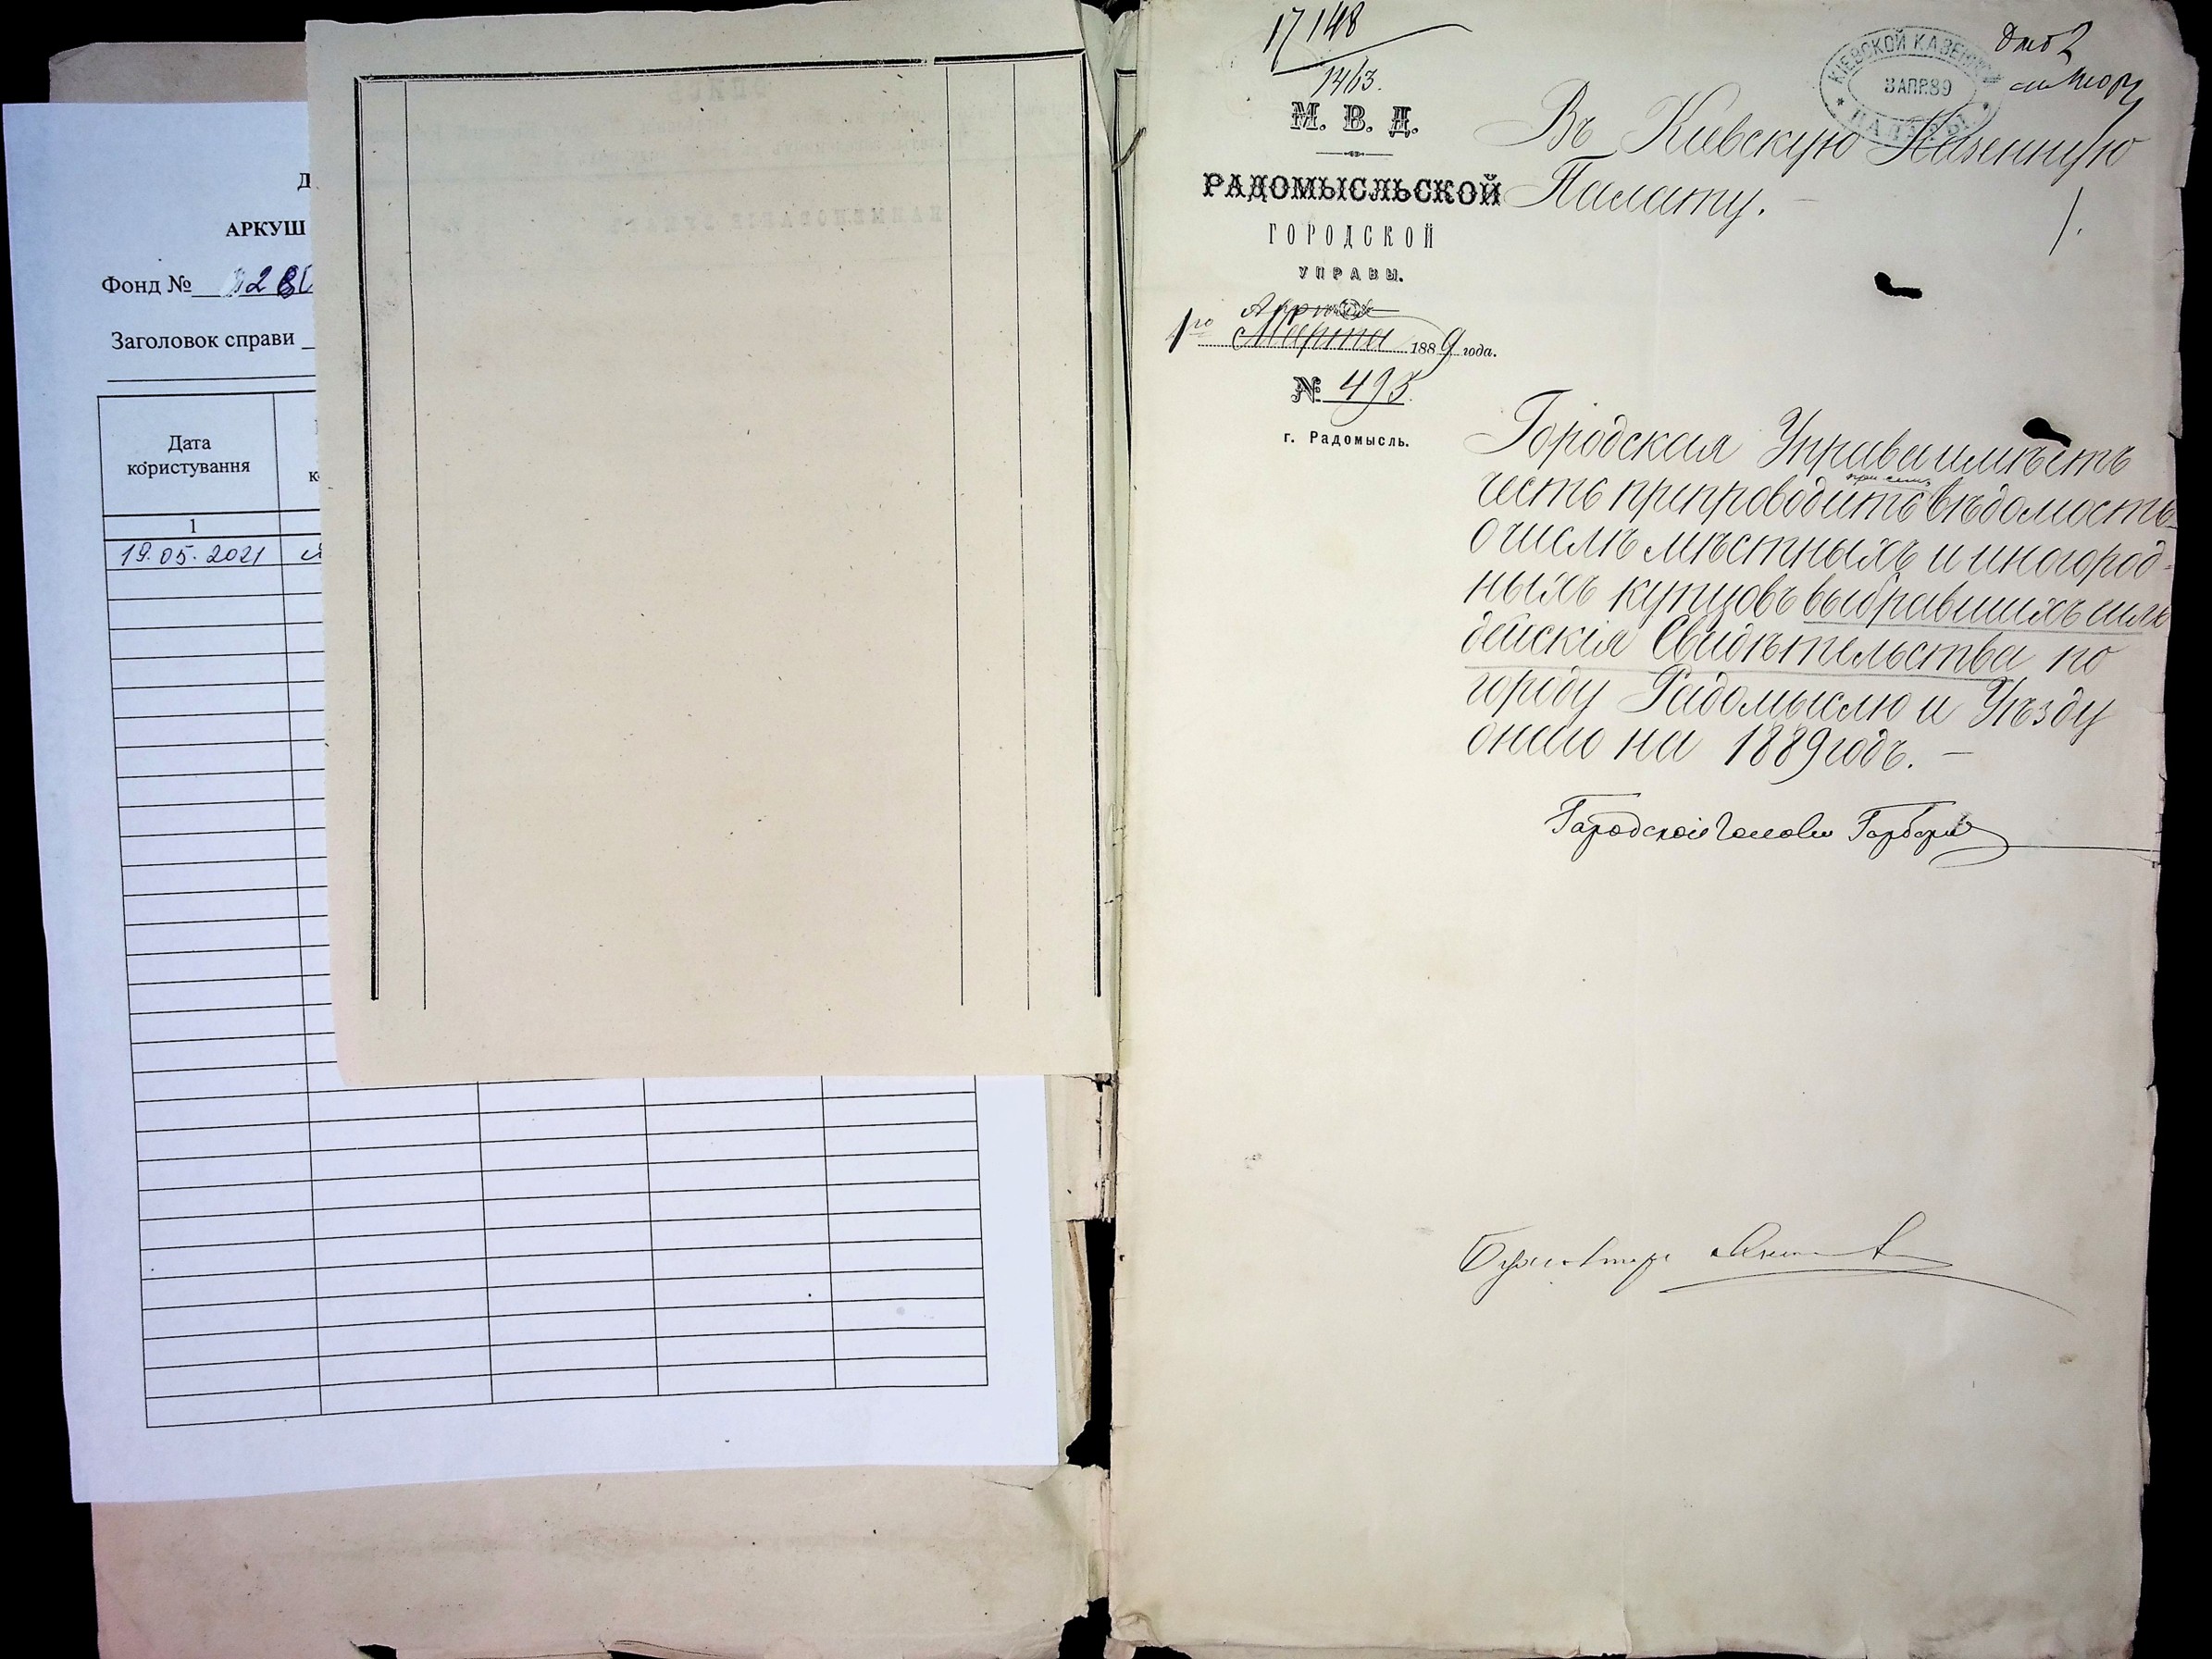 Д
АРКУШ
Фонд №
Заголовок справи
Дата
користування
1
19.05.2021
17148
1463.
М. В. Д.
РАДОМЫСЛЬСКОЙ
ГОРОДСКОЙ
УПРАВЫ.
Апрѣля
1го Марта 1889 года.
№ 495.
г. Радомысль.
КІЕВСКОЙ КАЗЕННОЙ
3 АПР. 89
ПАЛАТЫ
Въ Киевскую Казенную
Палату.
1.
Городская Управа имѣетъ
при семъ
честь препроводить вѣдомость
о числѣ мѣстныхъ и иногород-
ныхъ купцовъ выбравшихъ гиль
дейскія Свидѣтельства по
городу Радомыслю и Уѣзду
оного на 1889 годъ. —
Городской Голова
Бухгалтеръ